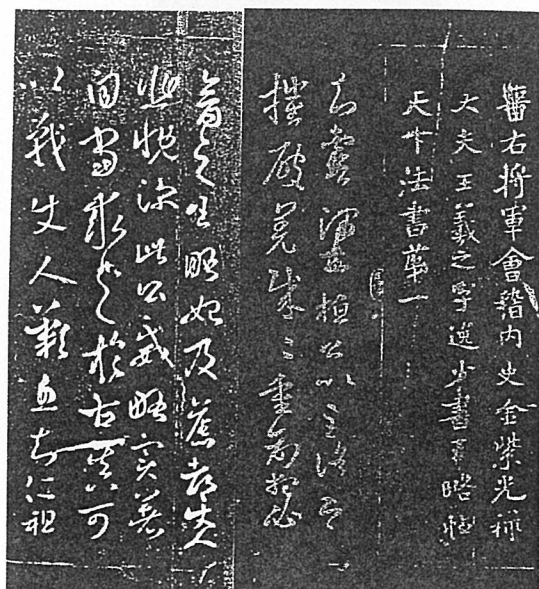 晉右將軍會稽內史金紫光祿
大夫王羲之字逸少書王略帖
天下法書第一
知虞帥書桓公以至洛即
摧破羌賊〻重命想必
禽之王略始及舊都使人
悲慨深此公威略實著
自當求之於古真可
以戰使人歎息知仁祖